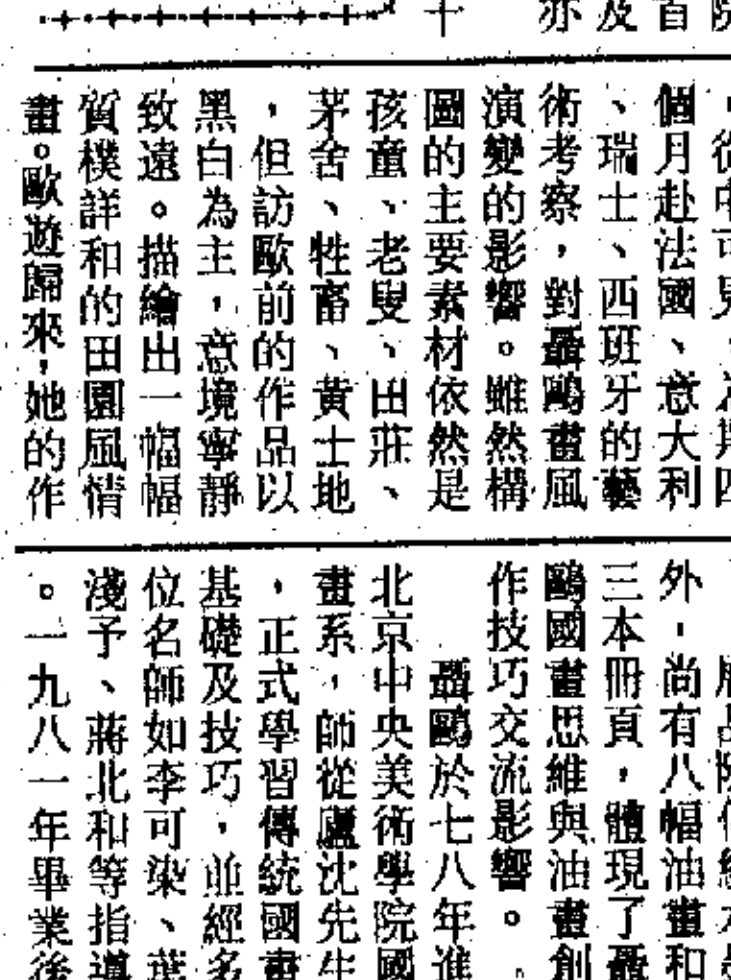 院
首
及
亦
十
個月赴法國、意大利
、瑞士、西班牙的藝
術考察，對聶鷗畫風
演變的影響。雖然構
圖的主要素材依然是
孩童、老叟、田莊、
茅舍、牲畜、黃土地
，但訪歐前的作品以
黑白為主，意境寧靜
致遠。描繪出一幅幅
質樸詳和的田園風情
畫。歐遊歸來，她的作
外，尚有八幅油畫和
三本冊頁，體現了聶
鷗國畫思維與油畫創
作技巧交流影響。
聶鷗於七八年進
北京中央美術學院國
畫系，師從盧沈先生
，正式學習傳統國畫
基礎及技巧，並經多
位名師如李可染、葉
淺予、蔣北和等指導
。一九八一年畢業後